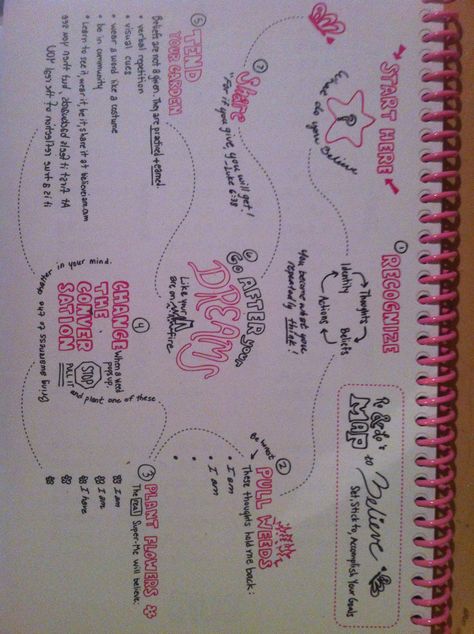 → START HERE ←
?
do you Believe
① RECOGNIZE
Thoughts
Beliefs
Actions
Identity
You become what you
repeatedly think!
Re & do's
MAP to Believe
Set, Stick to, Accomplish Your Goals
② PULL WEEDS
These thoughts hold me back:
• I am
• I am
•
•
③ PLANT FLOWERS
The real Super-Me will believe.
I am
I am
I have
④ CHANGE
THE
CONVER
SATION
when a weed
pops up.
STOP
PULL IT and plant one of these
in your mind.
Bring awareness to
⑤ TEND
YOUR GARDEN
Beliefs are not a given. They are practiced + earned
• verbal repetition
• visual cues
• wear a word like a costume
• be in community
• Learn to see it, wear it, be it, share it at believiam.com
At first it feels awkward, but may you see
it is a true reflection of the real YOU
⑥ GO AFTER your
DREAMS
Like your
are on fire
⑦ Share
"For if you give, you will get!
Luke 6:38